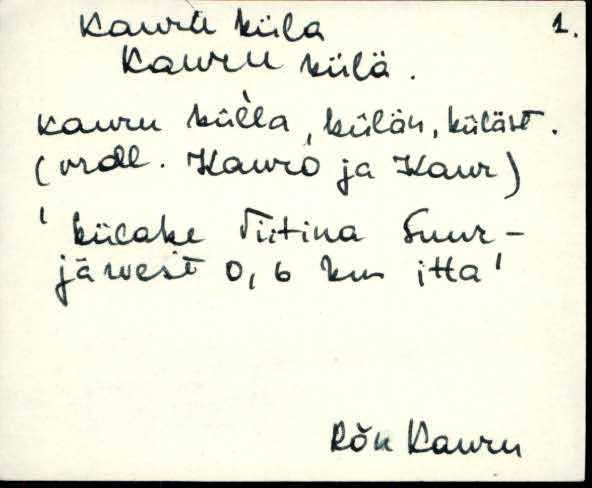 Kauru küla 1.
Kauru külä.
Kauru külla, külän, küläst.
(vrdl. Kauro ja Kaur)
'külake Viitina Suur-
järvest 0,6 km itta'
Rõu Kauru